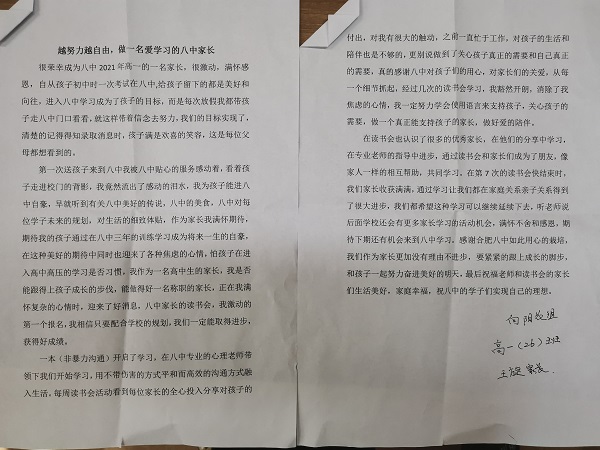 越努力越自由，做一名爱学习的八中家长
很荣幸成为八中 2021 年高一的一名家长，很激动，满怀感
恩，自从孩子初中时一次考试在八中,给孩子留下的都是美好和
向往，进入八中学习成为了孩子的目标，而是每次放假我都带孩
子走八中门口看看，就这样带着信念去努力，我们的目标实现了，
清楚的记得得知录取消息时，孩子满是欢喜的笑容，这是每位父
母都想看到的。
第一次送孩子来到八中我被八中贴心的服务感动着，看着孩
子走进校门的背影，我竟然流出了感动的泪水，我为孩子能进八
中自豪，早就听到有关八中美好的传说，八中的美食，八中对每
位学子未来的规划，对生活的细致体贴，作为家长我满怀期待，
期待我的孩子通过在八中三年的训练学习成为将来一生的自豪，
在这种美好的期待中同时也迎来了各种焦虑的心情，怕孩子在进
入高中高压的学习是否习惯，我作为一名高中生的家长，我是否
能跟得上孩子成长的步伐，能做得好一名称职的家长，正在我满
怀复杂的心情时，迎来了好消息，八中家长的读书会，我激动的
第一个报名,我相信只要配合学校的规划，我们一定能取得进步，
获得好成绩。
一本（非暴力沟通）开启了学习，在八中专业的心理老师带
领下我们开始学习，用不带伤害的方式平和而高效的沟通方式融
入生活。每周读书会活动看到每位家长的全心投入分享对孩子的
付出，对我有很大的触动，之前一直忙于工作，对孩子的生活和
陪伴也是不够的，更别说做到了关心孩子真正的需要和自己真正
的需要，真的感谢八中对孩子们的用心，对家长们的关爱，从每
一个细节抓起，经过几次的读书会学习，我豁然开朗，消除了我
焦虑的心情，我一定努力学会使用语言来支持孩子，关心孩子的
需要，做一个真正能支持孩子的家长，做好爱的陪伴。
在读书会也认识了很多的优秀家长，在他们的分享中学习，
在专业老师的指导中进步，通过读书会和家长们成为了朋友，像
家人一样的相互帮助，共同学习。在第 7 次的读书会快结束时，
我们家长收获满满，通过学习让我们都在家庭关系亲子关系得到
了很大进步，我们都希望这种学习可以继续延续下去，听老师说
后面学校还会有更多家长学习的活动机会，满怀不舍和感恩，期
待下期还有机会来到八中学习。感谢合肥八中如此用心的栽培，
我们作为家长更加没有理由不进步，要紧紧的跟上成长的脚步，
和孩子一起努力奋进美好的明天。最后祝福老师和读书会的家长
们生活美好，家庭幸福，祝八中的学子们实现自己的理想。
向阳花组
高一（26）班
王旋家长